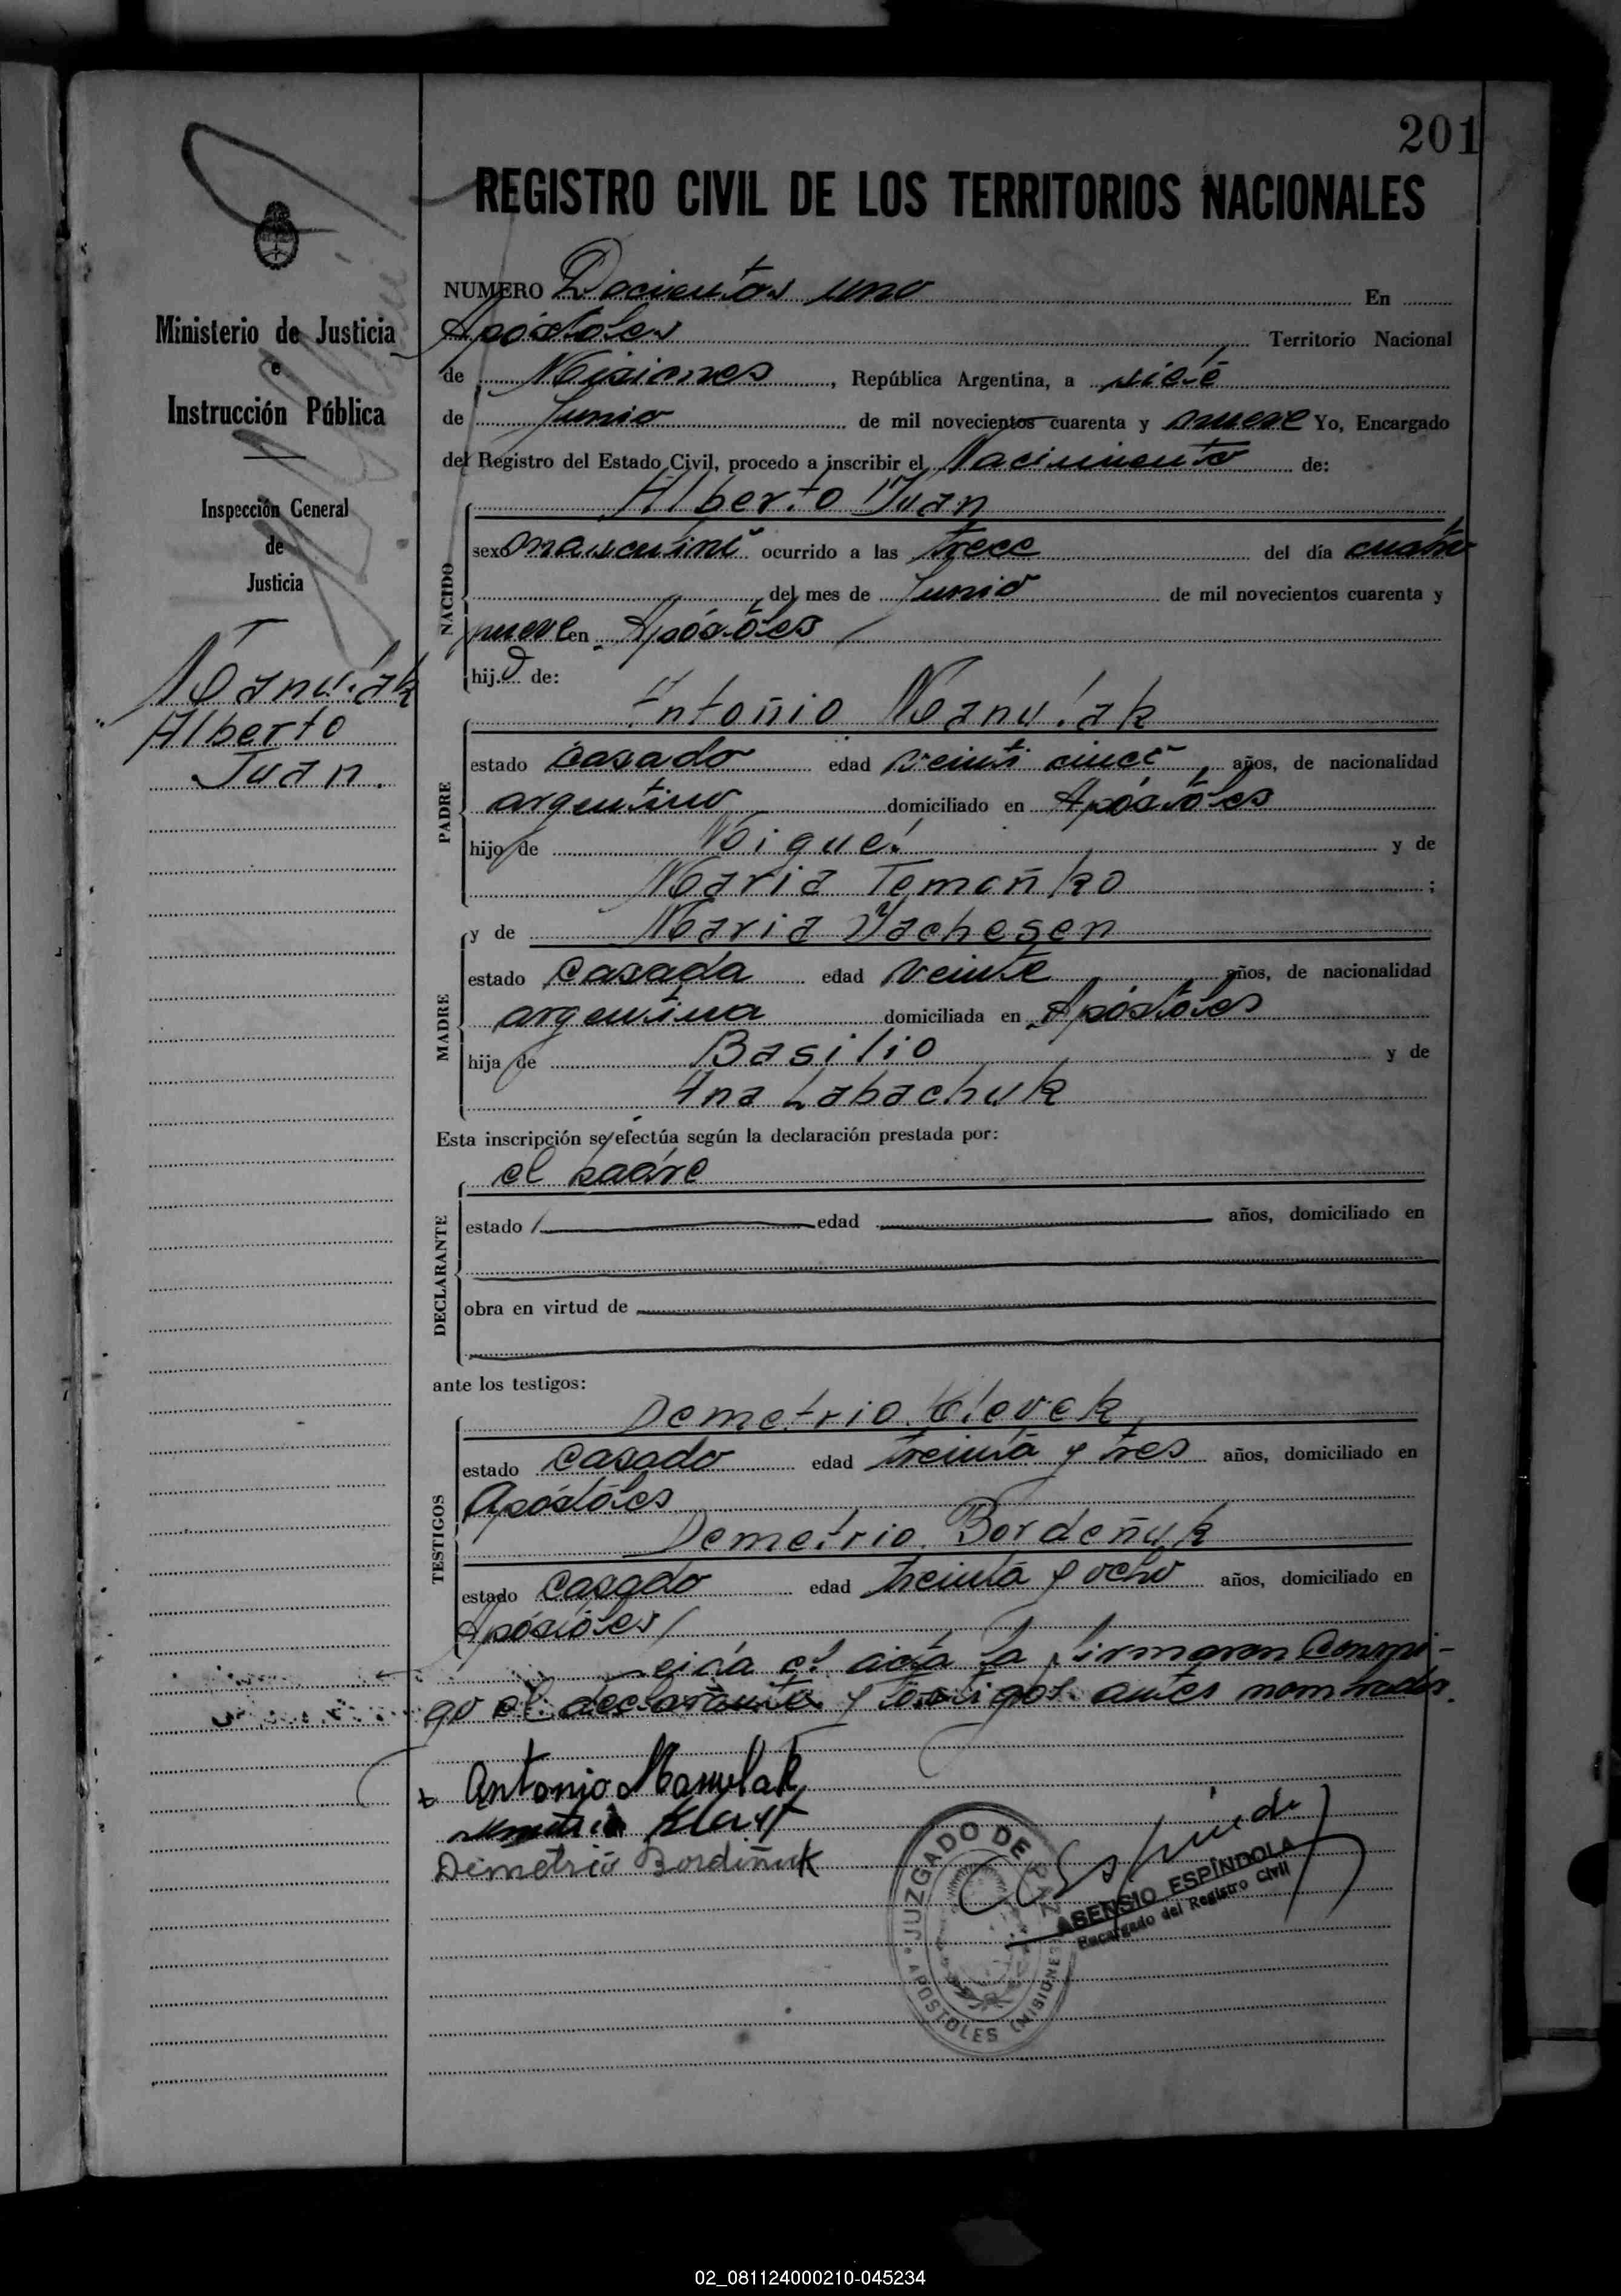 201
REGISTRO CIVIL DE LOS TERRITORIOS NACIONALES
Ministerio de Justicia
e
Instrucción Pública
Inspección General
de
Justicia
Manulak
Alberto
Juan.
NUMERO Docientos uno En
Apóstoles Territorio Nacional
de Misiones, República Argentina, a siete
de Junio de mil novecientos cuarenta y nueve Yo, Encargado
del Registro del Estado Civil, procedo a inscribir el Nacimiento de:
NACIDO
Alberto Juan
sexo masculino ocurrido a las trece del día cuatro
del mes de Junio de mil novecientos cuarenta y
nueve en Apóstoles
hijo de:
PADRE
Antonio Manulak
estado casado edad veinti cinco, años, de nacionalidad
argentino domiciliado en Apóstoles
hijo de Miguel y de
Maria Temeñko ;
MADRE
y de Maria Yachesen
estado casada edad veinte años, de nacionalidad
argentina domiciliada en Apóstoles
hija de Basilio y de
Ana Labachuk
Esta inscripción se efectúa según la declaración prestada por:
DECLARANTE
el padre
estado edad años, domiciliado en
obra en virtud de
ante los testigos:
TESTIGOS
Demetrio Klevek
estado casado edad treinta y tres años, domiciliado en
Apóstoles
Demetrio Bordeñuk
estado casado edad treinta y ocho años, domiciliado en
Apóstoles
Leida el acta la firmaron conmi-
go el declarante y testigos antes nombrados.
Antonio Manulak
Demetrio
Demetrio Bordeñuk
JUZGADO DE PAZ
APOSTOLES (MISIONES)
ASENSIO ESPÍNDOLA
Encargado del Registro Civil
02_081124000210-045234